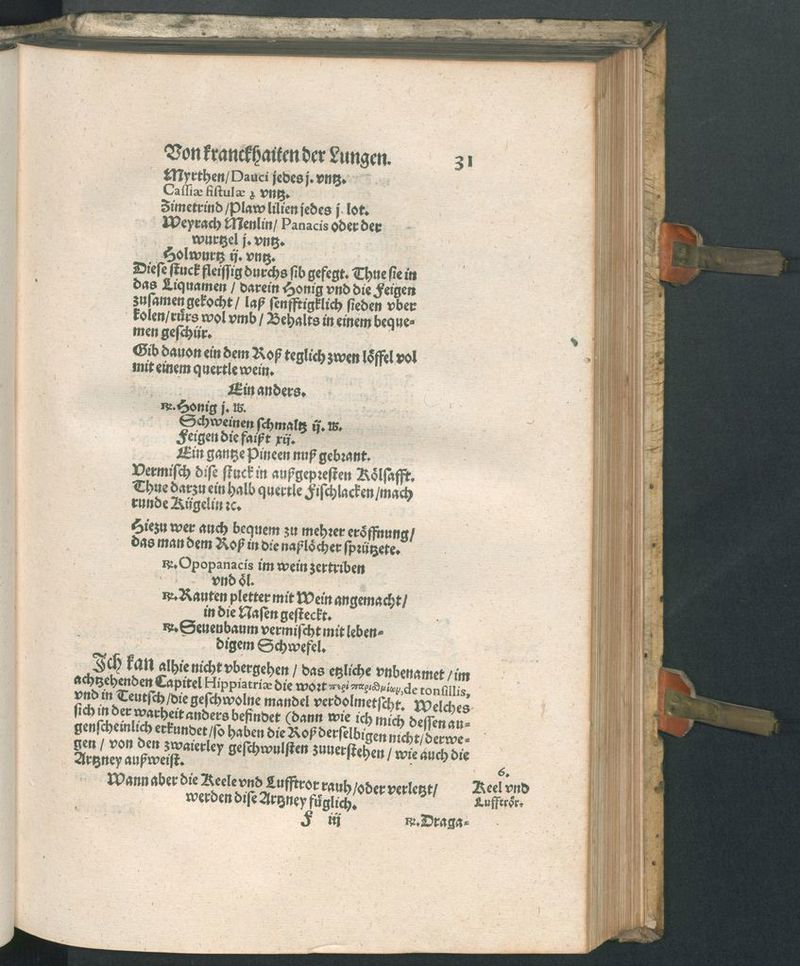 Von kranckhaiten der Lungen. 31
Myrthen/ Dauci jedes j. vntz.
Cassiæ fistulæ ʒ vntz.
Zimetrind/Plaw lilien jedes j. lot.
Weyrach Menlin/ Panacis oder der
wurtzel j. vntz.
Holwurtz ij. vntz.
Diese stuck fleissig durchs sib gefegt. Thue sie in
das Liquamen / darein Honig vnd die Feigen
zusamen gekocht / laß senfftigklich sieden vber
kolen/rürs wol vmb / Behalts in einem beque⸗
men geschür.
Gib dauon ein dem Roß teglich zwen löffel vol
mit einem quertle wein.
Ein anders.
℞. Honig j. ℔.
Schweinen schmaltz ij. ℔.
Feigen die faißt xij.
Ein gantze Pineen nuß gebrant.
Vermisch dise stuck in außgepresten Kölsafft.
Thue darzu ein halb quertle Fischlacken/mach
runde Kügelin ꝛc.
Hiezu wer auch bequem zu mehrer eröffnung/
das man dem Roß in die naßlöcher sprützete.
℞. Opopanacis im wein zertriben
vnd öl.
℞. Rauten pletter mit Wein angemacht/
in die Nasen gesteckt.
℞. Seuenbaum vermischt mit leben⸗
digem Schwefel.
Ich kan alhie nicht vbergehen / das etzliche vnbenamet / im
achtzehenden Capitel Hippiatriæ die wort περὶ παρισθμίων, de tonsillis,
vnd in Teutsch/die geschwolne mandel verdolmetscht. Welches
sich in der warheit anders befindet (dann wie ich mich dessen au⸗
genscheinlich erkundet/so haben die Roß derselbigen nicht/derwe⸗
gen / von den zwaierley geschwulsten zuuerstehen / wie auch die
Artzney außweist.
Wann aber die Keele vnd Lufftror rauh/oder verletzt/
werden dise Artzney füglich.
6.
Keel vnd
Lufftrör.
F iij ℞. Draga⸗